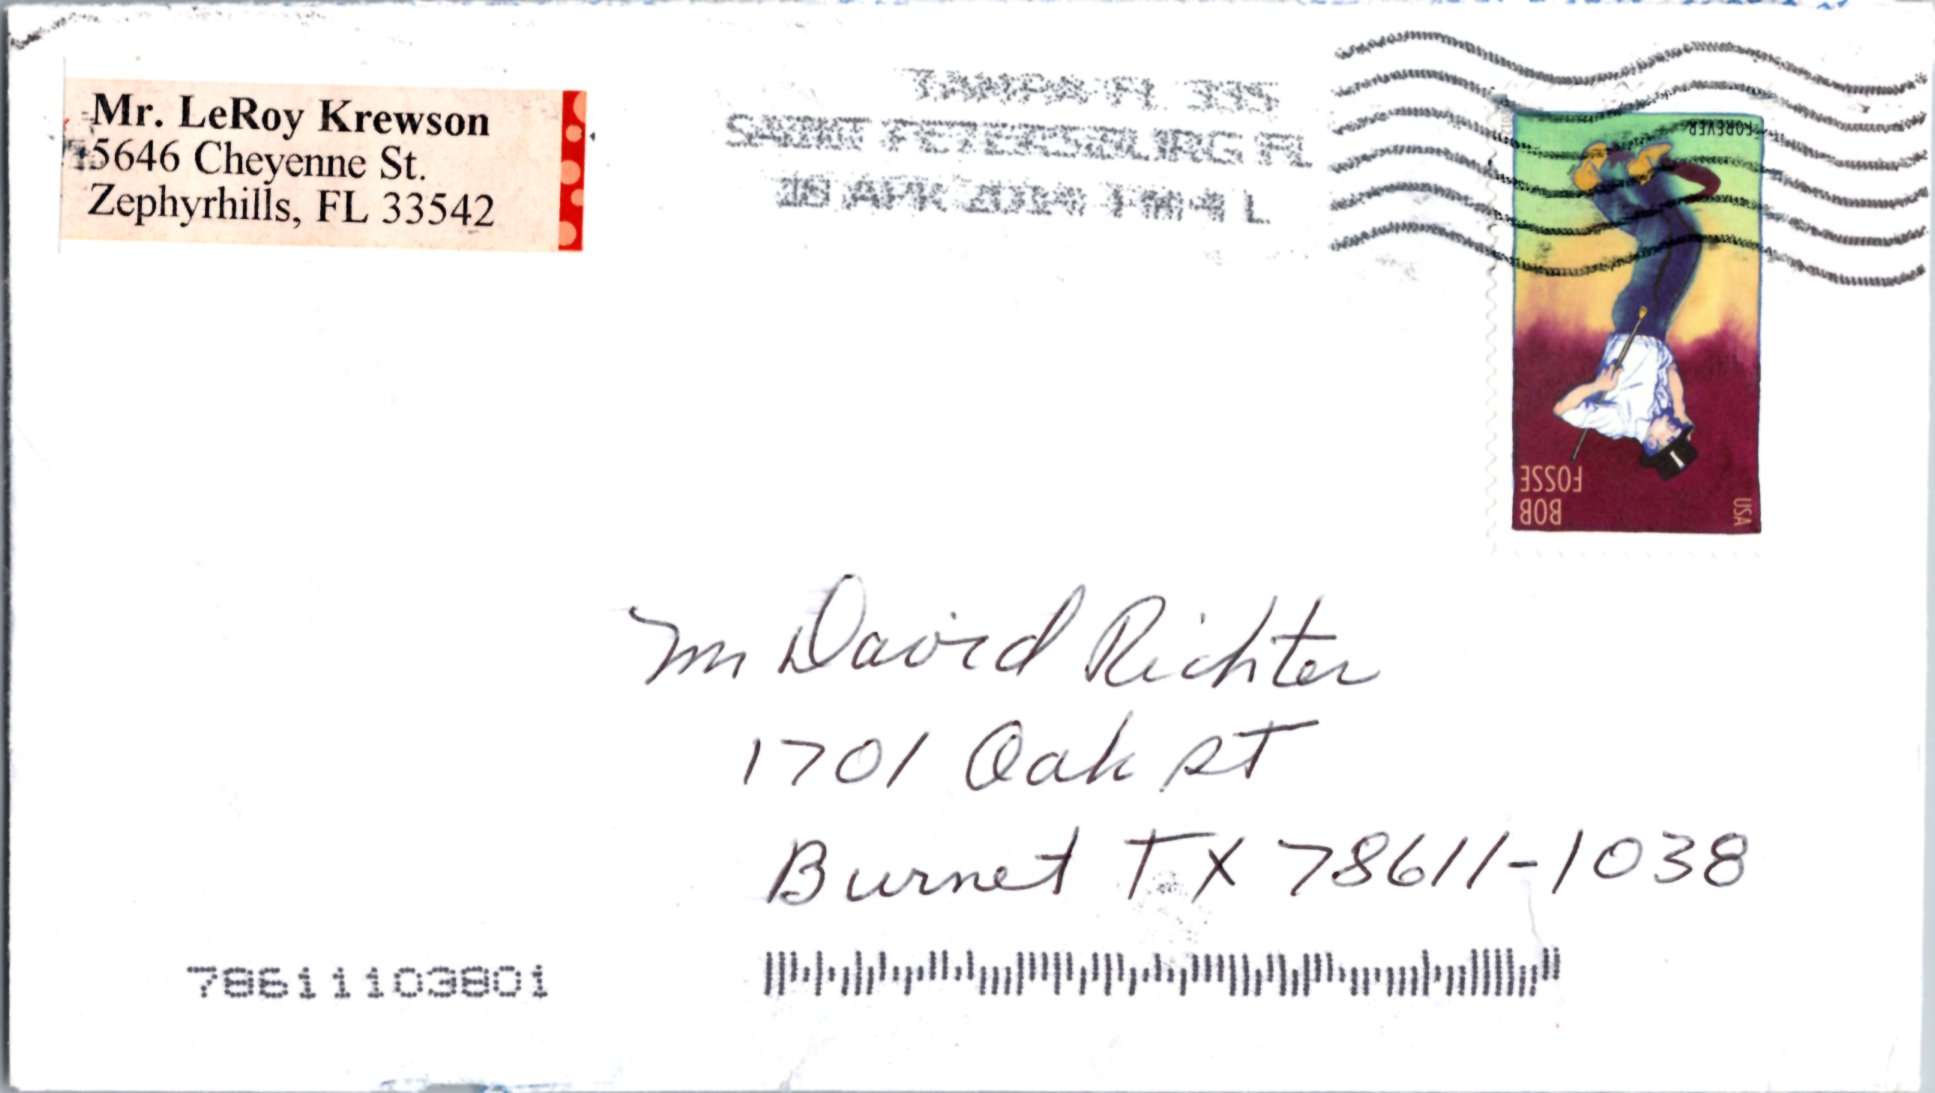 Mr. LeRoy Krewson
5646 Cheyenne St.
Zephyrhills, FL 33542
TAMPA FL 335
SAINT PETERSBURG FL
APR 2014 PM 4 L
FOREVER
BOB
FOSSE
USA
Mr David Richter
1701 Oak St
Burnet TX 78611-1038
78611103801